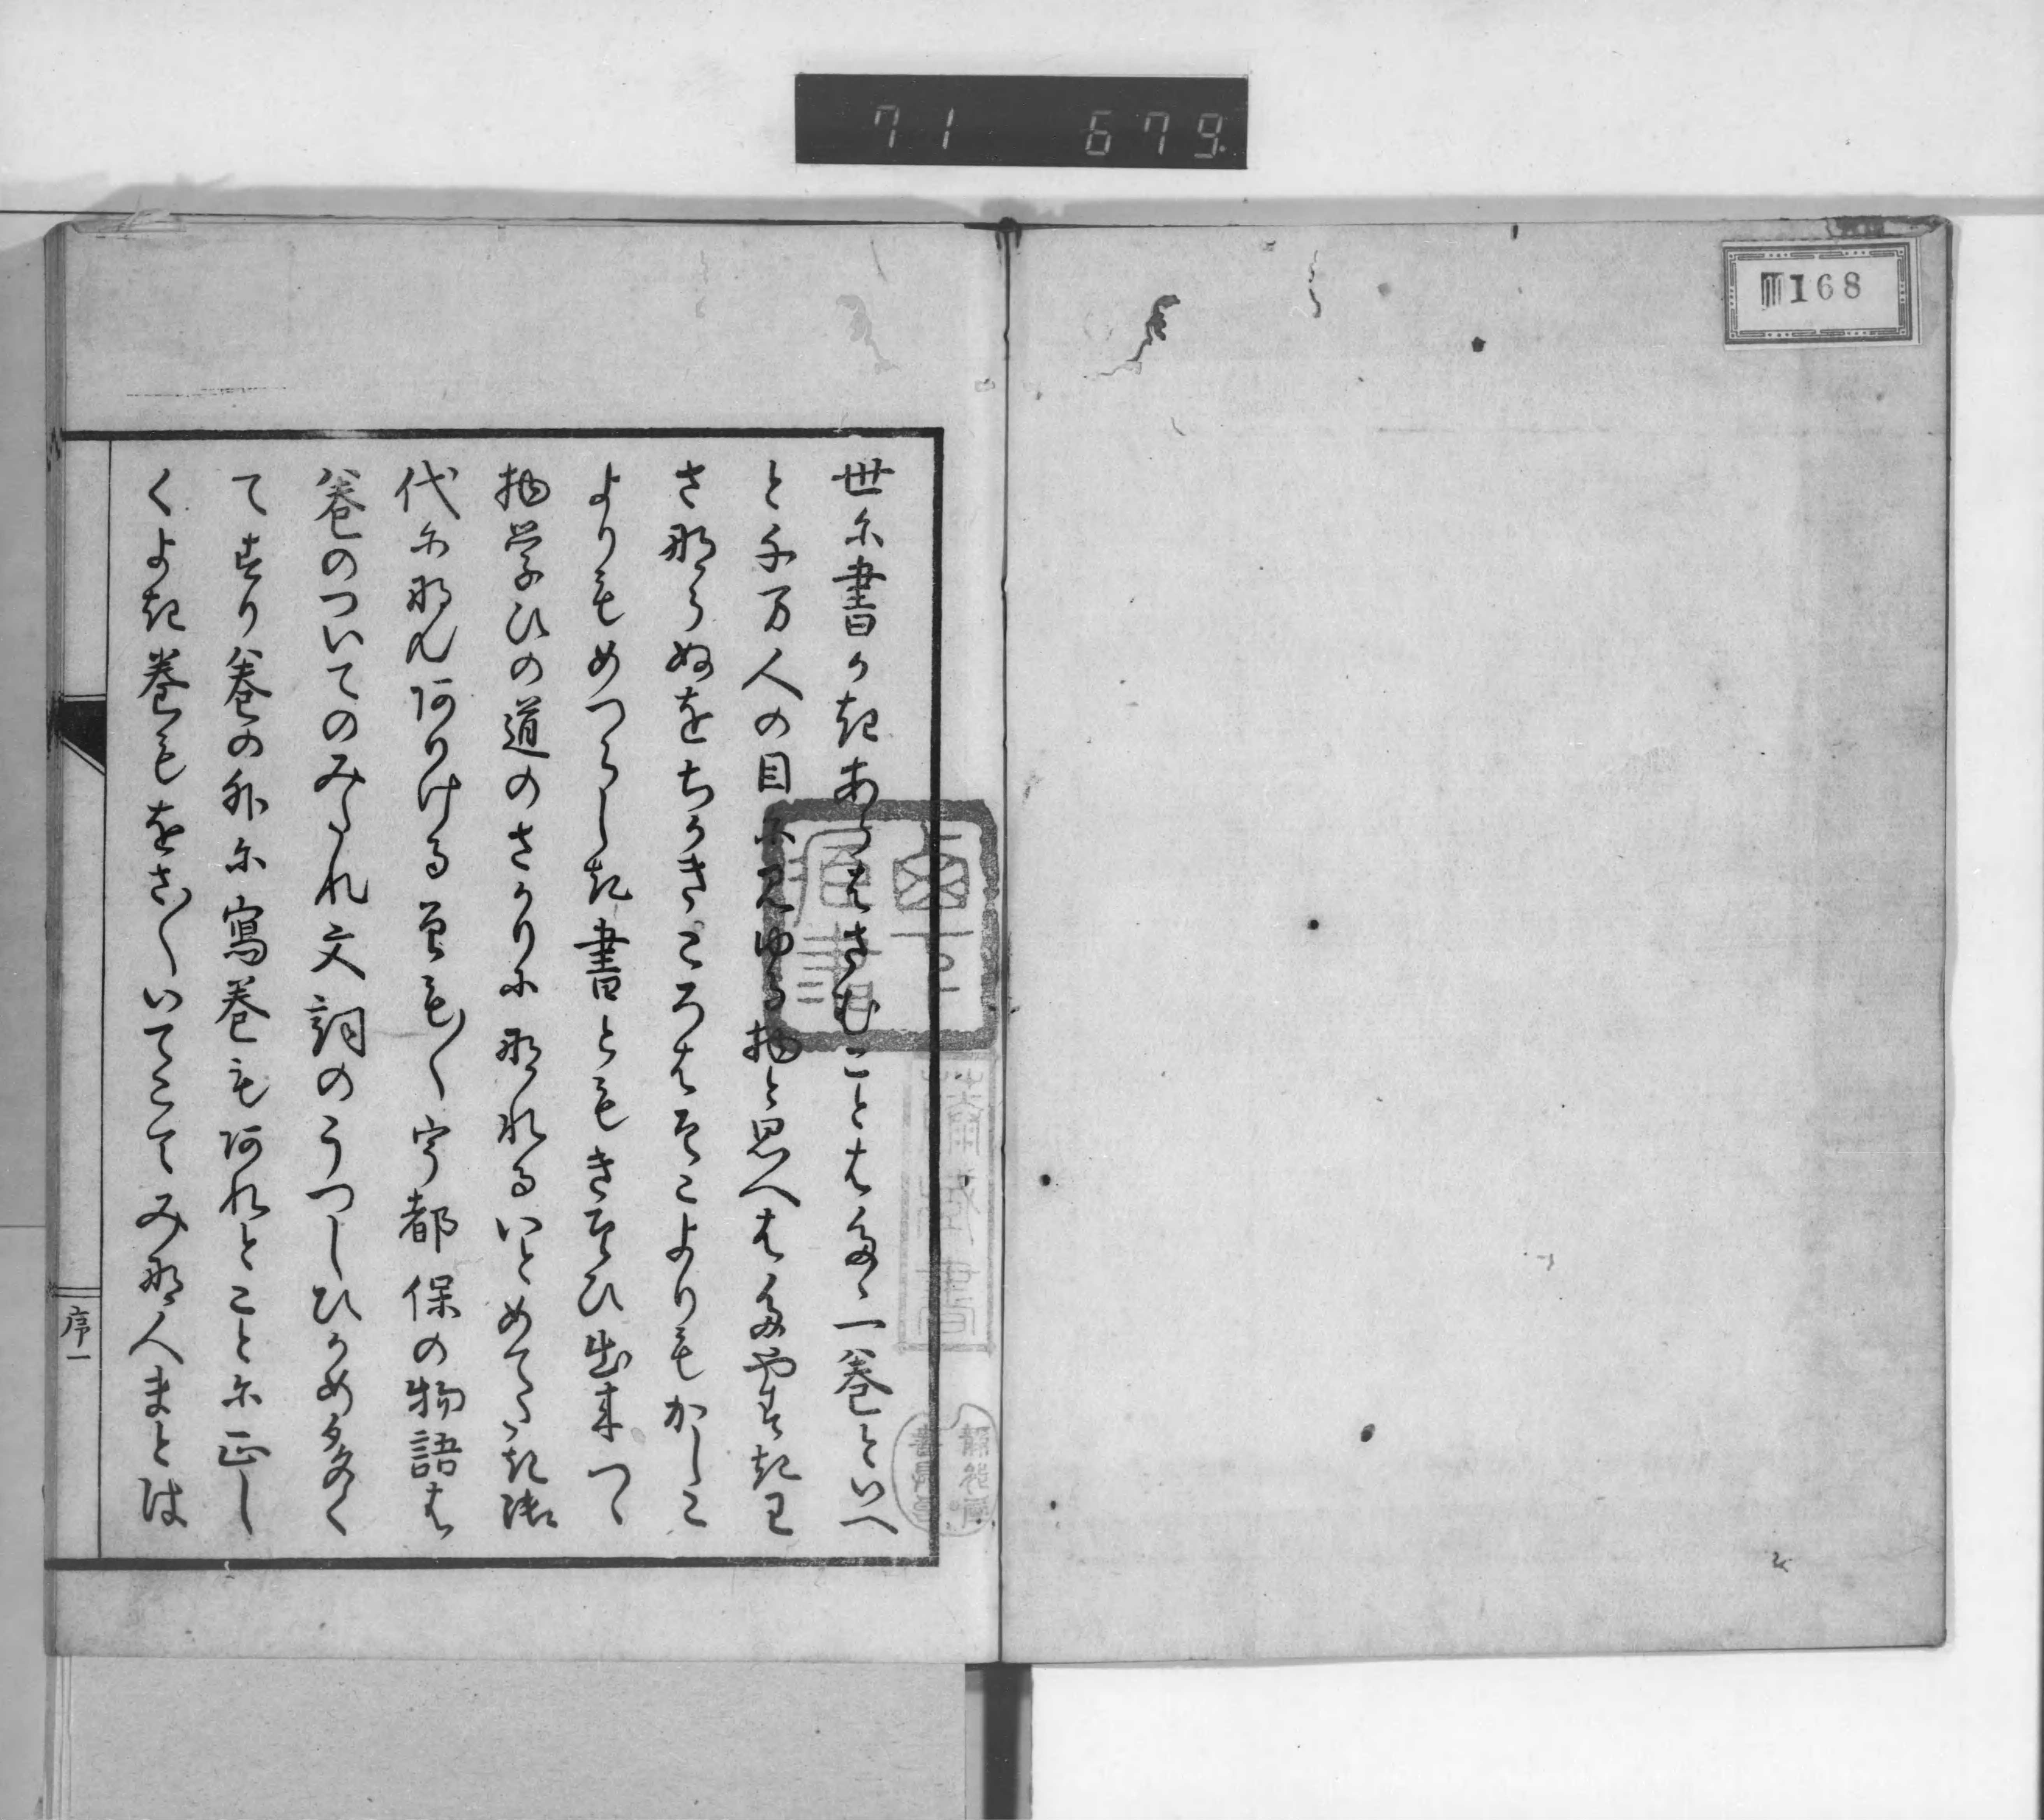 71 679
168
世に書かきあらはさむことはたゝ一巻といへ
と千万人の目に見ゆる物と思へはたやすきわ
さならぬをちかきころはそこよりもかしこ
よりもめつらしき書ともきそひ出来つゝ
物学ひの道のさかりになれるいとめてたき御
代になんありけるそも〱宇都保の物語は
巻のついてのみたれ文詞のうつしひかめ多く
てすり巻の外に寫巻もあれとことに正し
くよき巻もをさ〱いてこてみな人まとは
序一